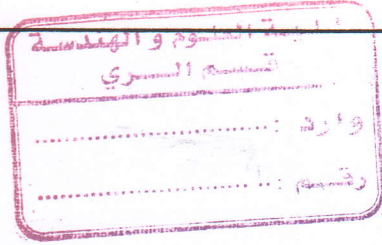 كلية العلوم و الهندسة
قسم السري
وارد : ..............................
رقم : ..............................